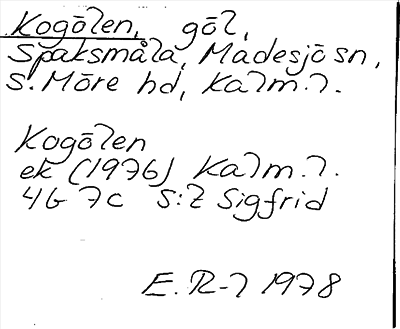 Kogölen, göl,
Spaksmåla, Madesjö sn,
S. Möre hd, Kalm. l.
Kogölen
ek (1976) Kalm. l.
4G 7c S:t Sigfrid
E. R-l 1978